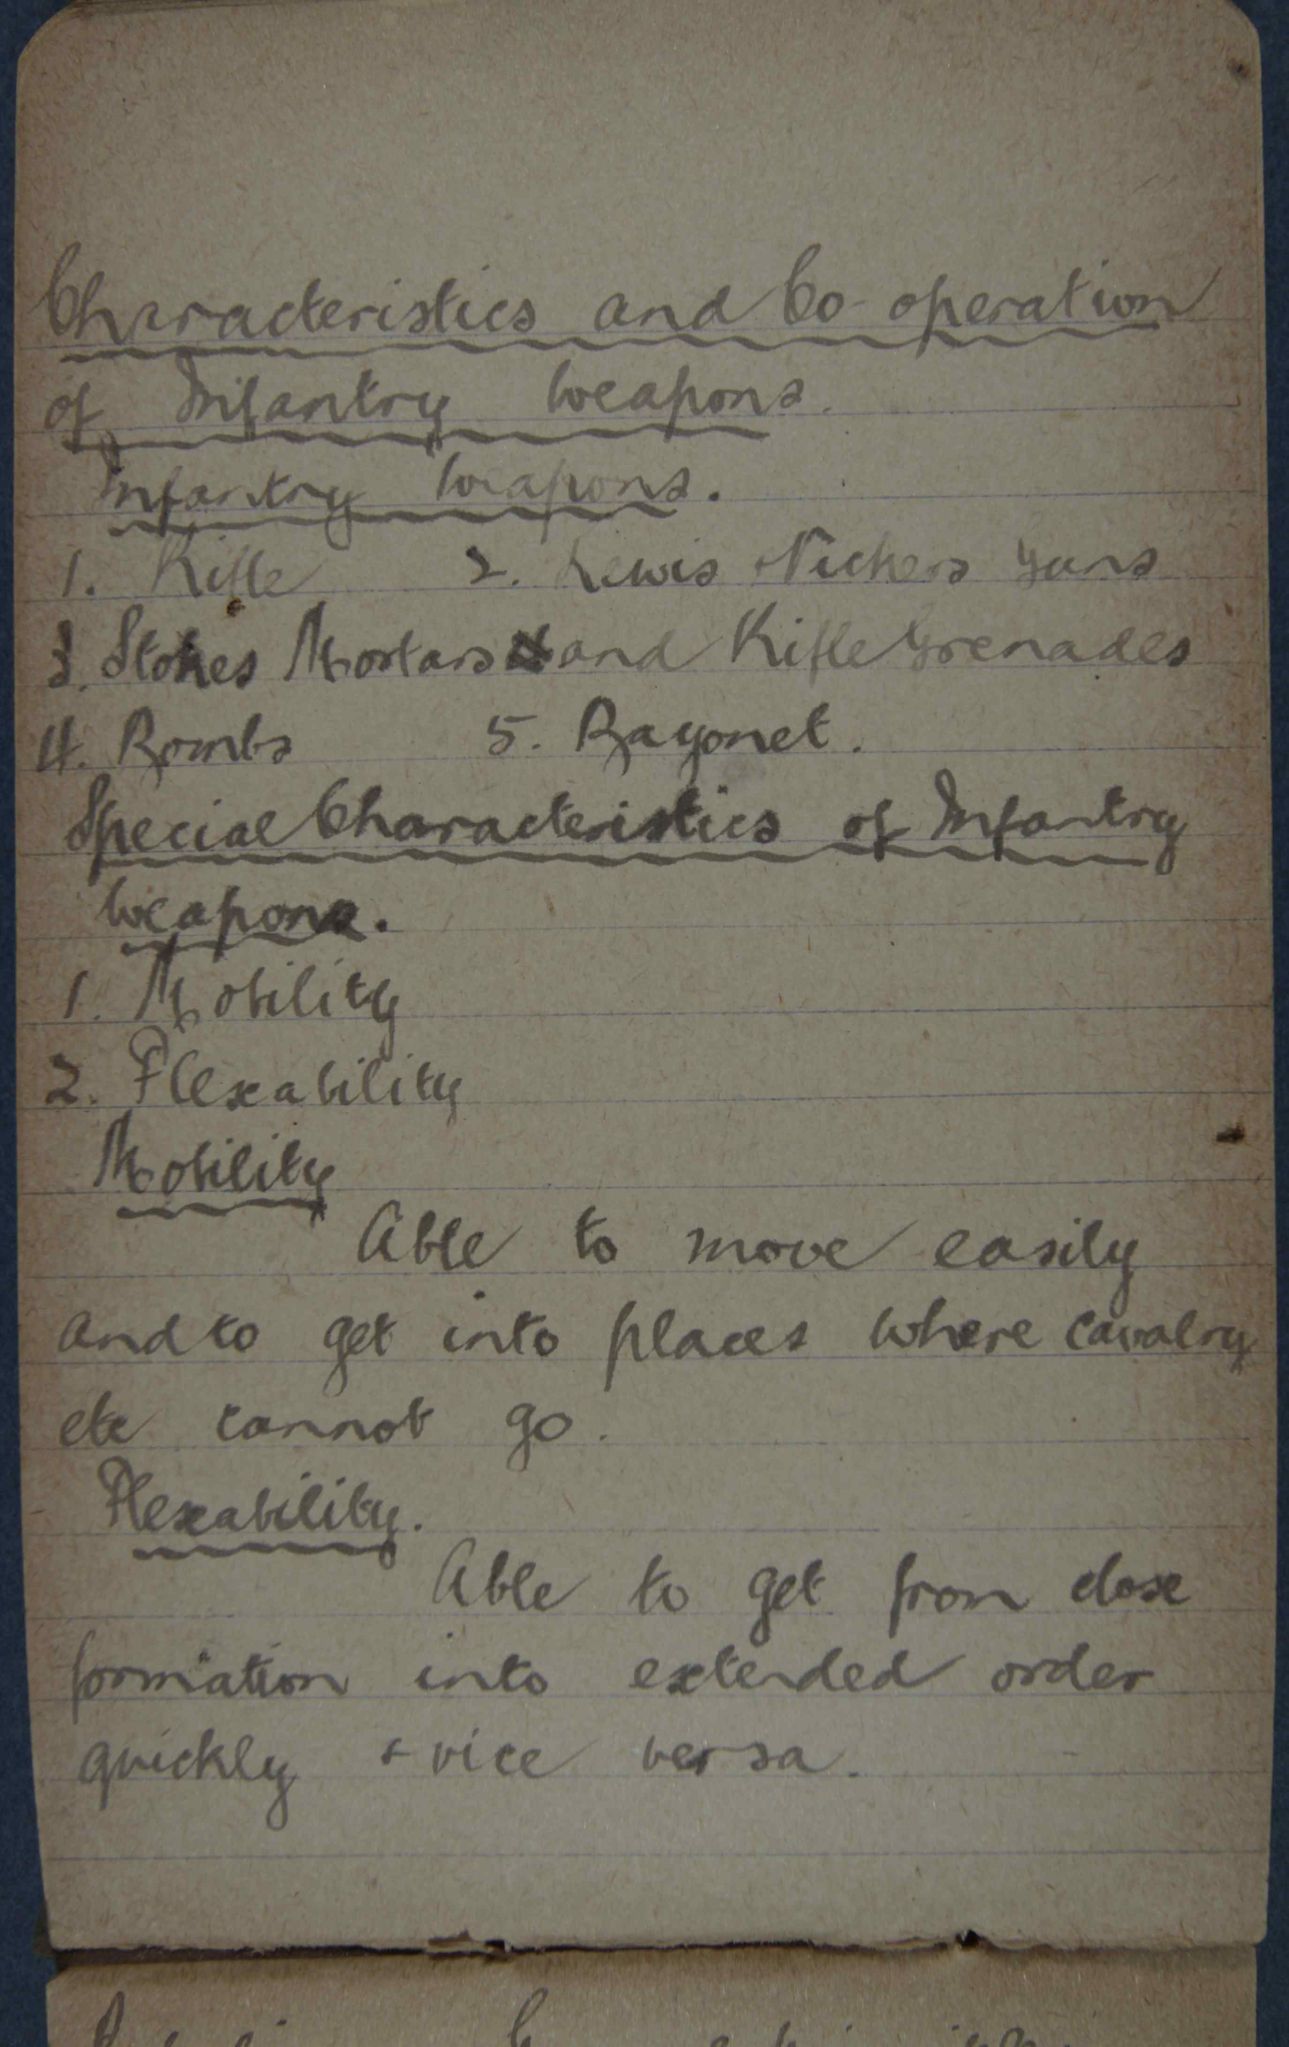 Characteristics and Co-operation
of Infantry Weapons.
Infantry Weapons.
1. Rifle 2. Lewis + Vickers Guns
3. Stokes Mortars and Rifle Grenades
4. Bombs 5. Bayonet.
Special Characteristics of Infantry
Weapons.
1. Mobility
2. Flexability
Mobility
Able to move easily
and to get into places where cavalry
etc cannot go.
Flexability.
Able to get from close
formation into extended order
quickly + vice versa.